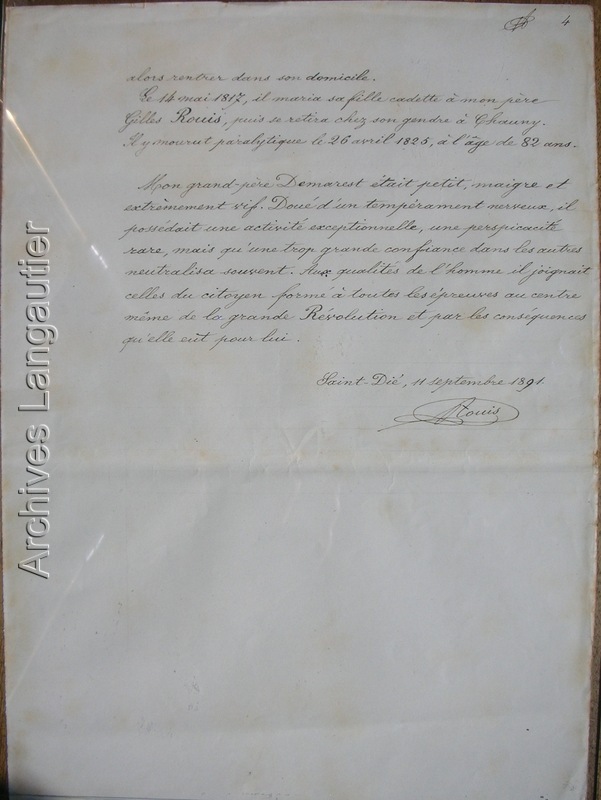 4
alors rentrer dans son domicile.
Le 14 mai 1817, il maria sa fille cadette à mon père
Gilles Rouis, puis se retira chez son gendre à Chauny.
Il y mourut paralytique le 26 avril 1825, à l'âge de 82 ans.
Mon grand-père Démarest était petit, maigre et
extrèmement vif. Doué d'un tempérament nerveux, il
possédait une activité exceptionnelle, une perspicacité
rare, mais qu'une trop grande confiance dans les autres
neutralisa souvent. Aux qualités de l'homme il joignait
celles du citoyen formé à toutes les épreuves au centre
même de la grande Révolution et par les conséquences
qu'elle eût pour lui.
Saint-Dié, 11 septembre 1891
Rouis
Archives Langautier